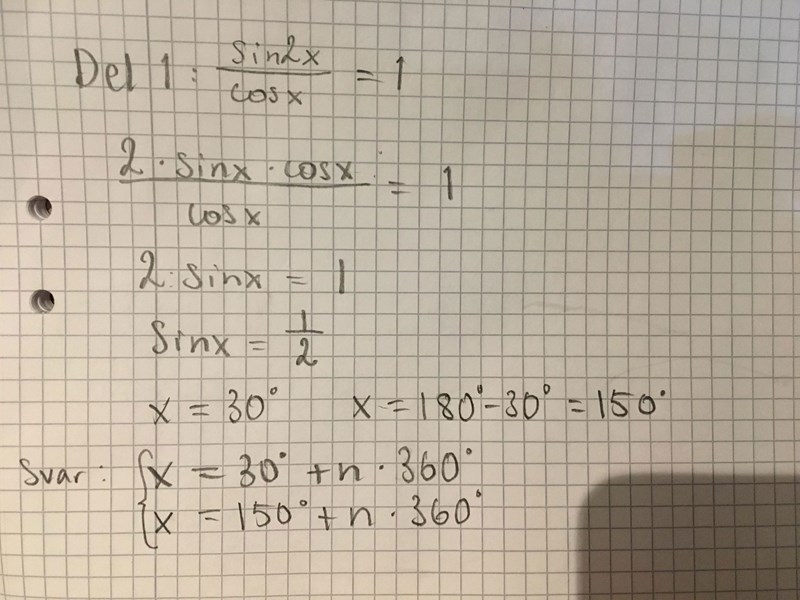 Del 1: sin2x/cosx = 1
2 · sinx · cosx/cosx = 1
2·sinx = 1
sinx = 1/2
x = 30° x = 180°-30° = 150°
Svar: { x = 30° + n · 360°
{ x = 150° + n · 360°